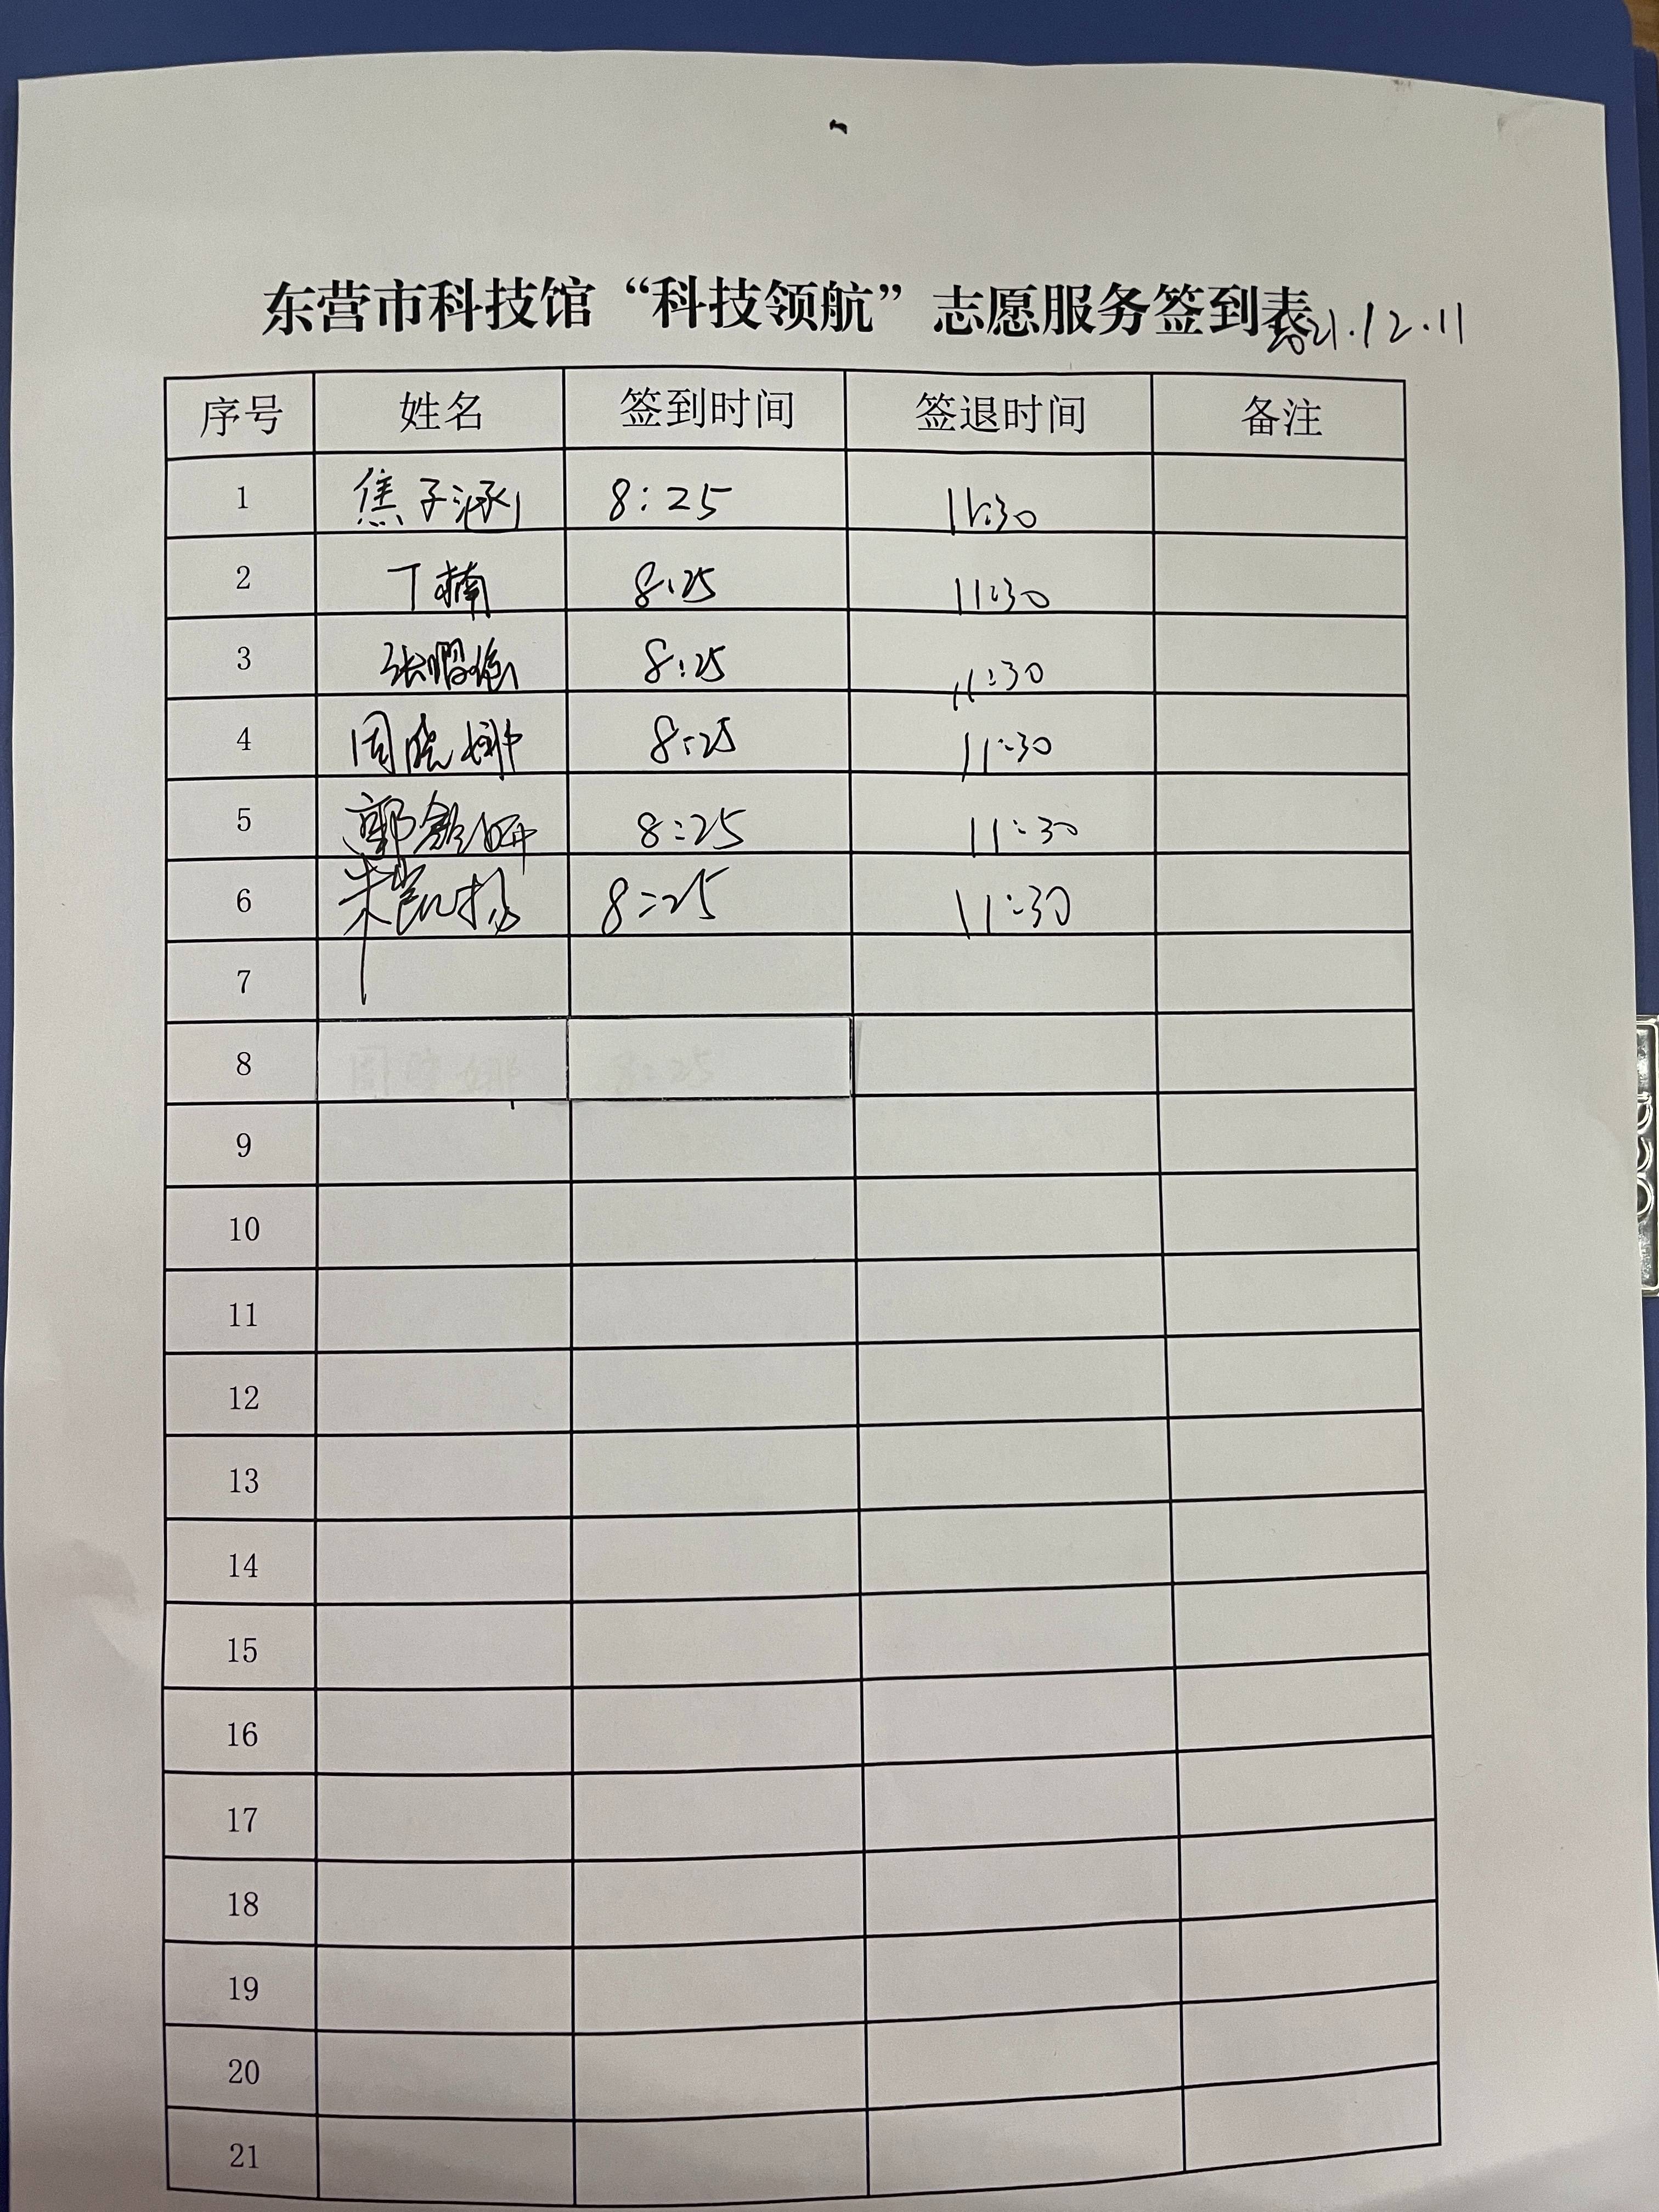 东营市科技馆“科技领航”志愿服务签到表
2021.12.11
序号 姓名 签到时间 签退时间 备注
1 焦子涵 8:25 11:30
2 丁楠 8:25 11:30
3 8:25 11:30
4 周晓娜 8:25 11:30
5 郭舒妍 8:25 11:30
6 朱凯扬 8:25 11:30
7
8 周晓娜 8:25
9
10
11
12
13
14
15
16
17
18
19
20
21